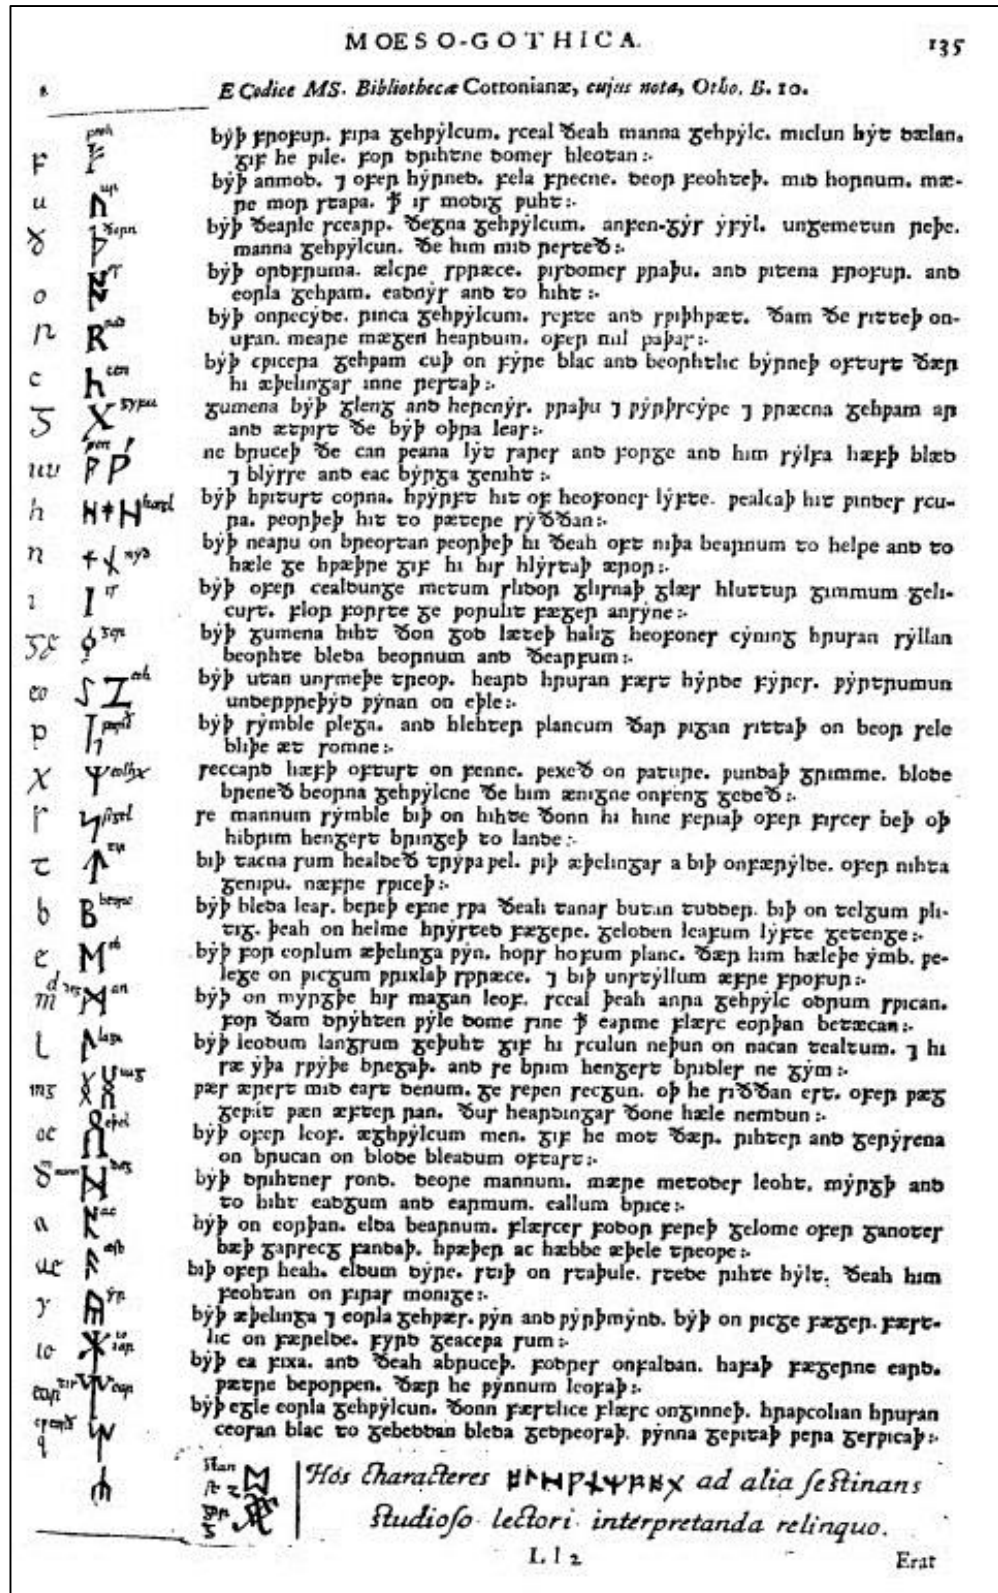 MOESO-GOTHICA. 135
E Codice MS. Bibliothecæ Cottonianæ, cujus nota, Otho. B. 10.
f ᚠ feoh býþ frofur. fira gehƿýlcum. sceal ðeah manna gehƿýlc. miclun hýt dælan.
gif he ƿile. for drihtne domes hleotan:.
u ᚢ ur býþ anmod. ⁊ ofer hýrned. fela frecne. deor feohteþ. mid hornum. mæ-
re mor stapa. ꝥ is modig ƿuht:.
ð ᚦ ðorn býþ ðearle scearp. ðegna gehƿýlcum. anfen-gýs ýfýl. ungemetun reþe.
manna gehƿýlcun. ðe him mid resteð:.
o ᚩ os býþ ordfruma. ælcre spræce. ƿisdomes ƿraþu. and ƿitena frofur. and
eorla gehƿam. eadnýs and to hiht:.
r ᚱ rad býþ onrecýde. rinca gehƿýlcum. sefte and sƿiþhƿæt. ðam ðe sitteþ on-
ufan. meare mægen heardum. ofer mil paþas:.
c ᚳ cen býþ cƿicera gehƿam cuþ on fýre blac and beorhtlic býrneþ oftust ðær
hi æþelingas inne restaþ:.
g ᚷ gyfu gumena býþ gleng and herenýs. ƿraþu ⁊ ƿýrþscýpe ⁊ ƿræcna gehƿam ar
and ætƿist ðe býþ oþra leas:.
uu ᚹ ƿen ne bruceþ ðe can ƿeana lýt sares and sorge and him sýlfa hæfþ blæd
⁊ blýsse and eac býrga geniht:.
h ᚻ hægl býþ hƿitust corna. hƿýrft hit of heofones lýfte. ƿealcaþ hit ƿindes scu-
ra. ƿeorþeþ hit to ƿætere sýððan:.
n ᚾ nyd býþ nearu on breostan ƿeorþeþ hi ðeah oft niþa bearnum to helpe and to
hæle ge hƿæþre gif hi his hlýstaþ æror:.
i ᛁ is býþ ofer cealdunge metum slidor glisnaþ glæs hluttur gimmum geli-
cust. flor forste ge ƿorulit fæger ansýne:.
ᛄ ger býþ gumena hiht ðon god læteþ halig heofones cýning hrusan sýllan
beorhte bleda beornum and ðearfum:.
eo ᛇ eoh býþ utan unsmeþe treoƿ. heard hrusan fæst hýrde fýres. ƿýrtrumun
underƿreþýd ƿýnan on eþle:.
p ᛈ peorð býþ sýmble plega. and hlehter ƿlancum ðar ƿigan sittaþ on beor sele
bliþe æt somne:.
x ᛉ eolhx seccard hæfþ oftust on fenne. ƿexeð on ƿature. ƿundaþ grimme. blode
breneð beorna gehƿýlcne ðe him ænigne onfeng gedeð:.
s ᛋ sigel se mannum sýmble biþ on hihte ðonn hi hine feriaþ ofer fisces beþ oþ
hi brim hengest bringeþ to lande:.
t ᛏ tir biþ tacna sum healdeð trýƿa ƿel. ƿiþ æþelingas a biþ onfærýlde. ofer nihta
genipu. næfre sƿiceþ:.
b ᛒ beorc býþ bleda leas. bereþ efne sƿa ðeah tanas butan tudder. biþ on telgum ƿli-
tig. þeah on helme hrýsted fægere. geloden leafum lýfte getenge:.
e ᛖ eh býþ for eorlum æþelinga ƿýn. hors hofum ƿlanc. ðær him hæleþe ýmb. ƿe-
lege on ƿicgum ƿrixlaþ spræce. ⁊ biþ unstýllum æfre frofur:.
d m ᛗ deg an býþ on mýrgþe his magan leof. sceal þeah anra gehƿýlc odrum sƿican.
for ðam drýhten ƿýle dome sine ꝥ earme flæsc eorþan betæcan:.
l ᛚ lagu býþ leodum langsum geþuht gif hi sculun neþun on nacan tealtum. ⁊ hi
sæ ýþa sƿýþe bregaþ. and se brim hengest bridles ne gým:.
ng ᛝ ing ƿæs ærest mid east denum. ge seƿen secgun. oþ he siððan est. ofer ƿæg
geƿat ƿæn æfter ran. ðus heardingas ðone hæle nemdun:.
oe ᛟ eþel býþ ofer leof. æghƿýlcum men. gif he mot ðær. rihter and gerýsena
on brucan on blode bleadum oftast:.
d mann ᛞ deg býþ drihtnes sond. deore mannum. mære metodes leoht. mýrgþ and
to hiht eadgum and earmum. eallum brice:.
a ᚪ ac býþ on eorþan. elda bearnum. flæsces fodor fereþ gelome ofer ganotes
bæþ garsecg fandaþ. hƿæþer ac hæbbe æþele treoƿe:.
ae ᚫ æsc biþ ofer heah. eldum dýre. stiþ on staþule. stede rihte hýlt. ðeah him
feohtan on firas monige:.
y ᚣ ýr býþ æþelinga ⁊ eorla gehƿæs. ƿýn and ƿýrþmýnd. býþ on ƿicge fæger. fæst-
lic on færelde. fyrd geacepa sum:.
io ᛡ io iar býþ ea fixa. and ðeah abruceþ. fodres onfaldan. hafaþ fægerne eard.
ƿætre beƿorpen. ðær he ƿýnnum leofaþ:.
ear ᛠ tir ear býþ egle eorla gehƿýlcun. ðonn fæstlice flæsc onginneþ. hraƿcolian hrusan
ceosan blac to gebeddan bleda gedreosaþ. ƿýnna geƿitaþ ƿera gesƿicaþ:.
cƿeorð q
stan st ᛥ
gar g ᚸ
Hos characteres ad alia festinans
studioso lectori interpretanda relinquo.
L l 2 Erat